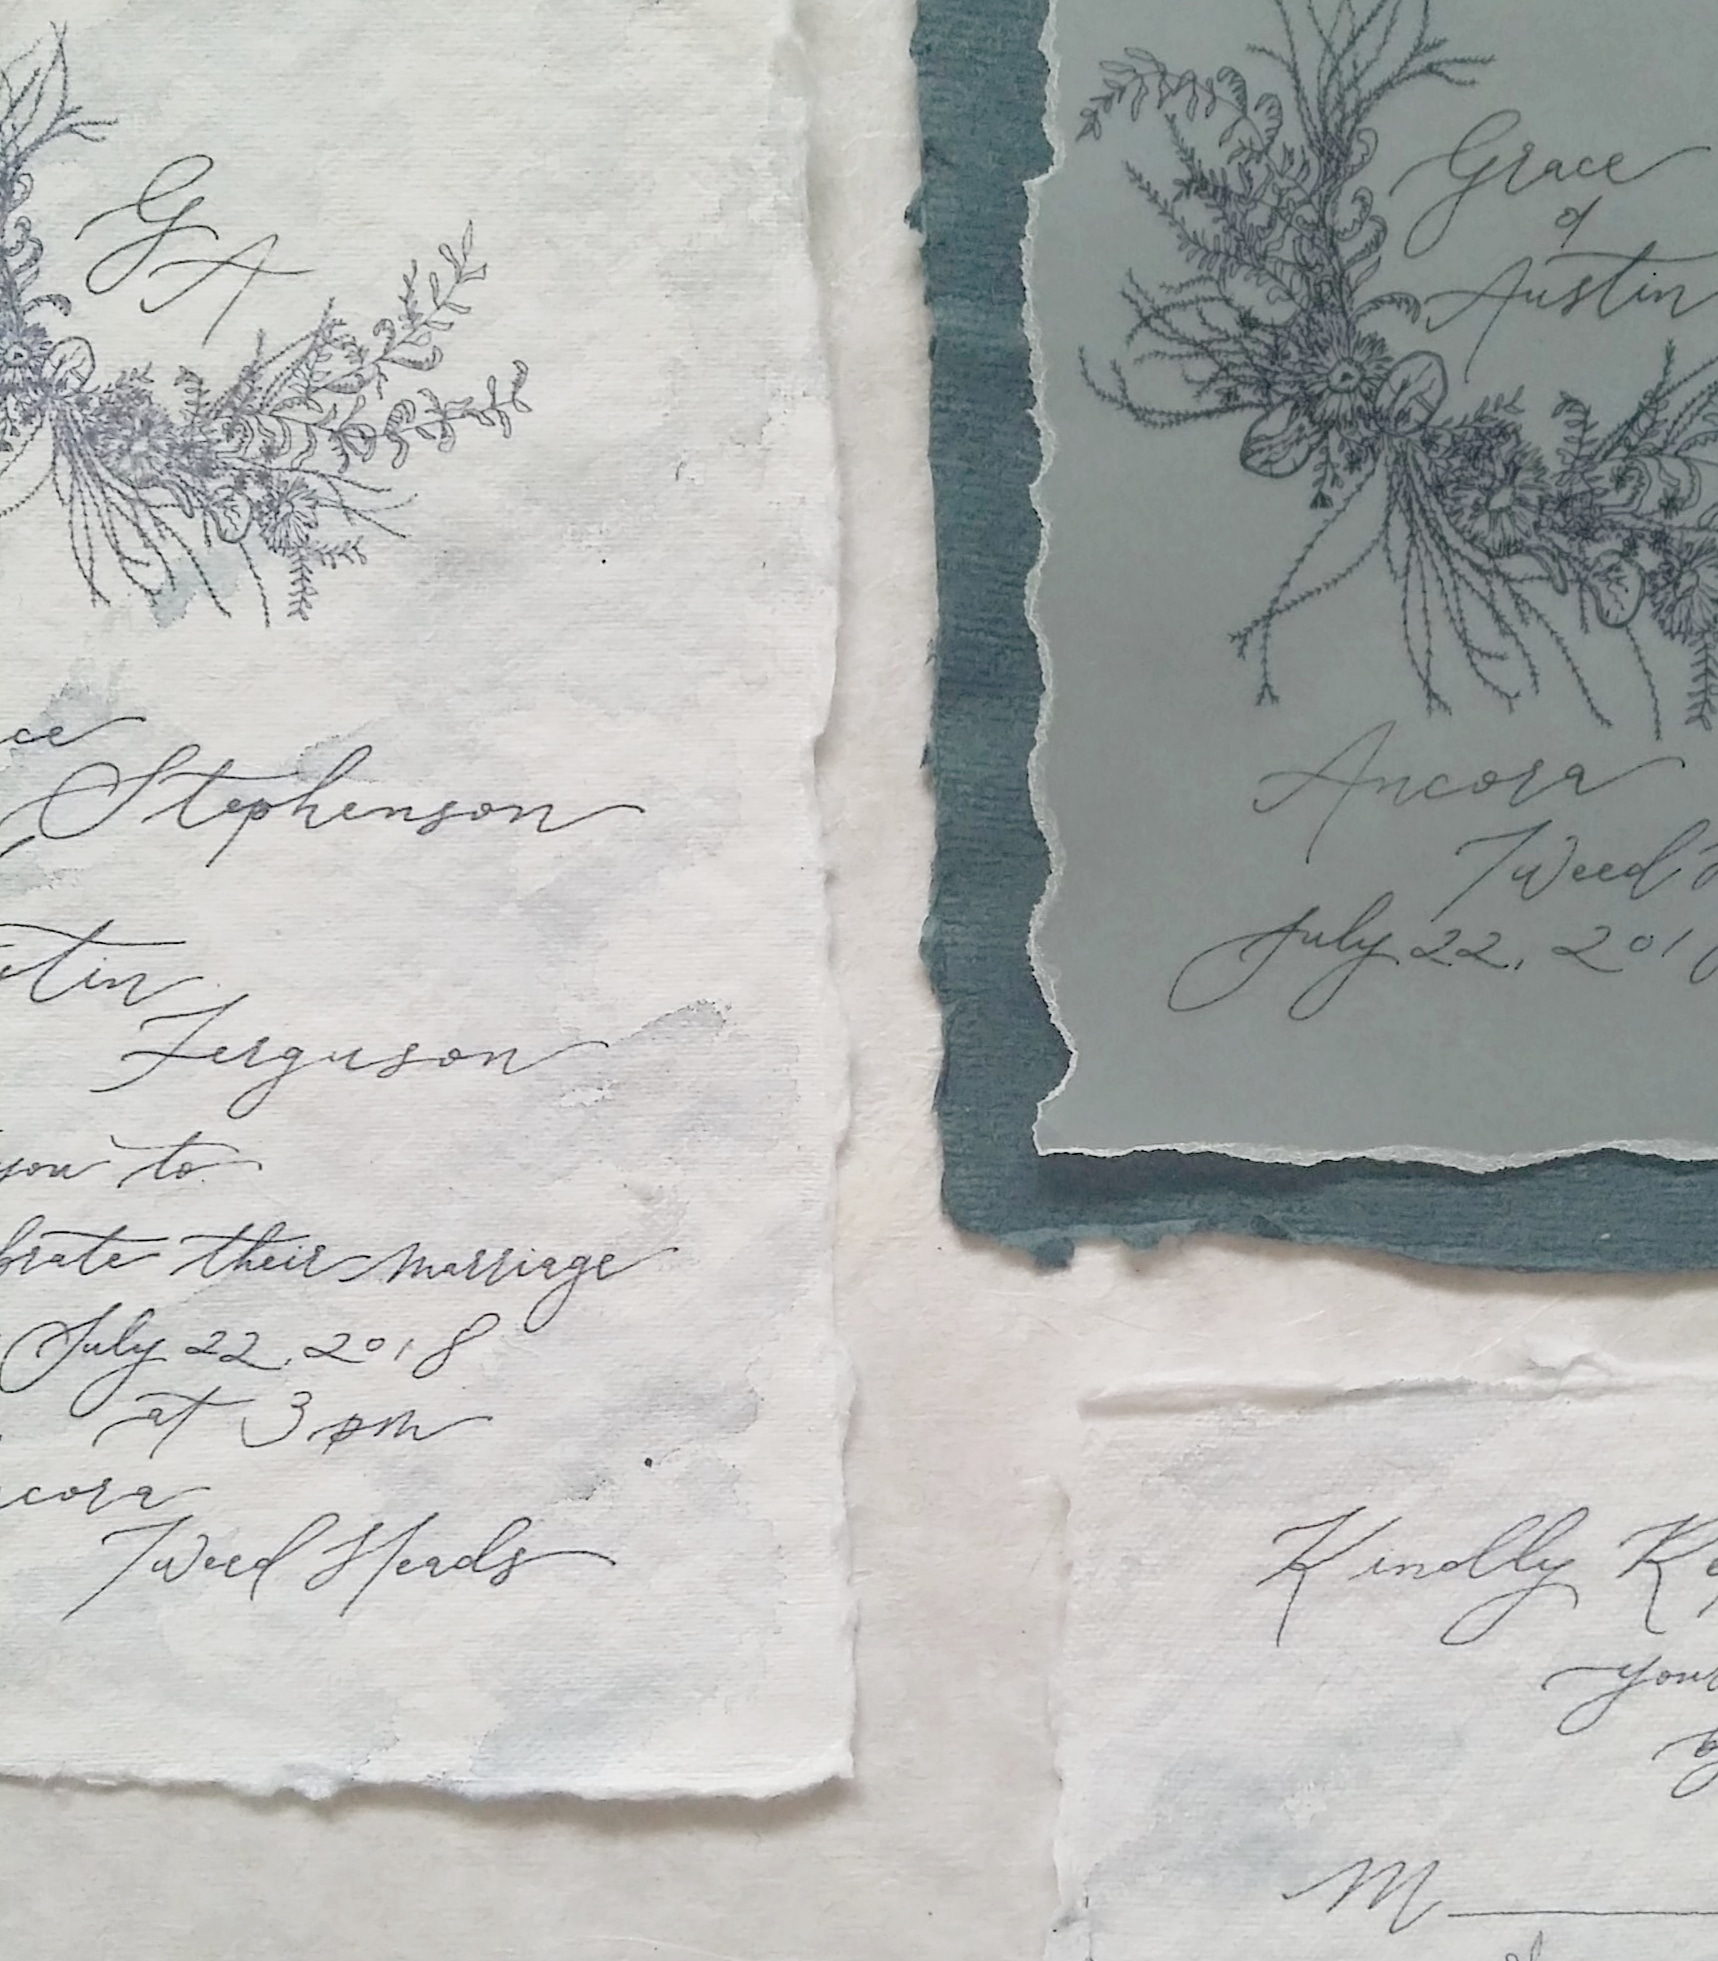 G
A
ce
Stephenson
stin
Ferguson
you to
brate their marriage
July 22, 2018
at 3 pm
ncora
Tweed Heads
Grace
&
Austin
Ancora
Tweed
July 22, 201
Kindly Re
your
by
M